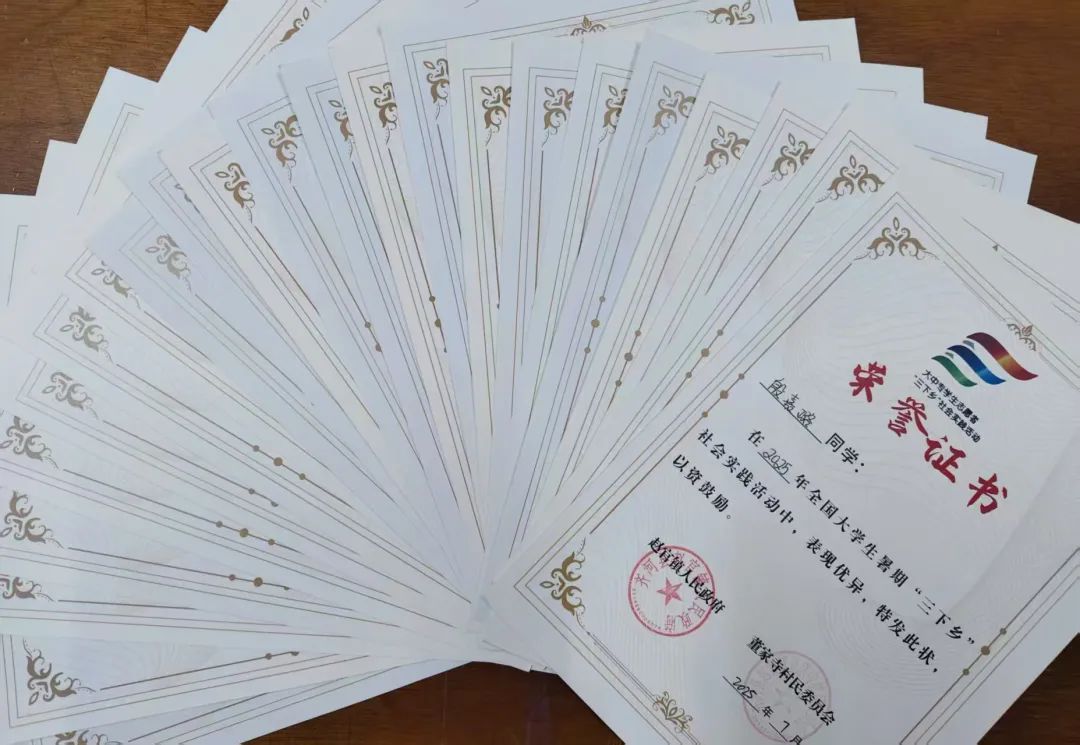 大中专学生志愿者
"三下乡"社会实践活动
荣誉证书
同学：
在 2025 年全国大学生暑期“三下乡”
社会实践活动中，表现优异，特发此状，
以资鼓励。
赵官镇人民政府
董家寺村民委员会
2025 年 7 月